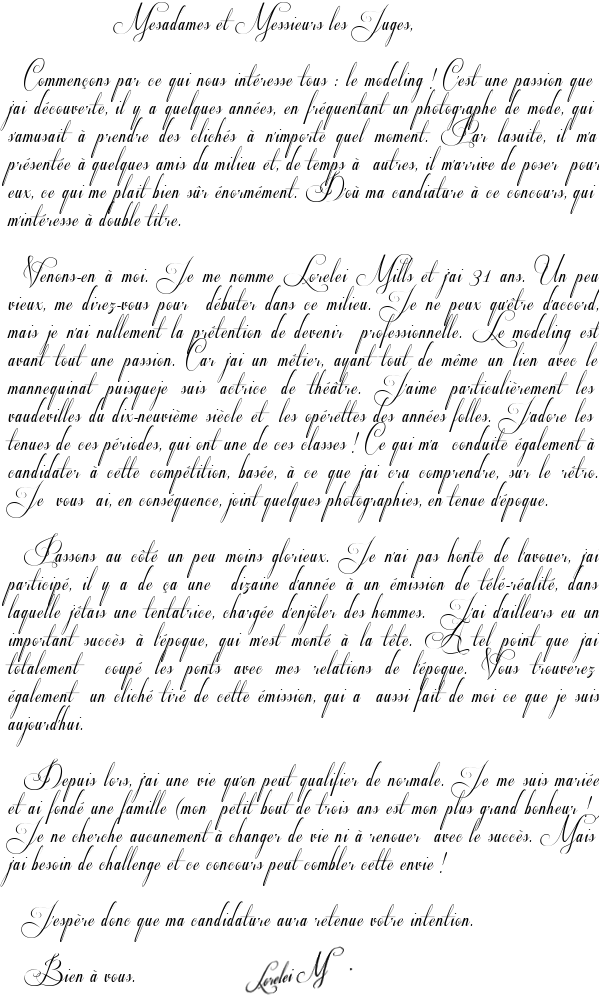 Mesadames et Messieurs les Juges,
Commençons par ce qui nous intéresse tous : le modeling ! C'est une passion que
j'ai découverte, il y a quelques années, en fréquentant un photographe de mode, qui
s'amusait à prendre des clichés à n'importe quel moment. Par lasuite, il m'a
présentée à quelques amis du milieu et, de temps à autres, il m'arrive de poser pour
eux, ce qui me plait bien sûr énormément. D'où ma candiature à ce concours, qui
m'intéresse à double titre.
Venons-en à moi. Je me nomme Lorelei Mills et j'ai 31 ans. Un peu
vieux, me direz-vous pour débuter dans ce milieu. Je ne peux qu'être d'accord,
mais je n'ai nullement la prétention de devenir professionnelle. Le modeling est
avant tout une passion. Car j'ai un métier, ayant tout de même un lien avec le
mannequinat puisqueje suis actrice de théâtre. J'aime particulièrement les
vaudevilles du dix-neuvième siècle et les opérettes des années folles. J'adore les
tenues de ces périodes, qui ont une de ces classes ! Ce qui m'a conduite également à
candidater à cette compétition, basée, à ce que j'ai cru comprendre, sur le rétro.
Je vous ai, en conséquence, joint quelques photographies, en tenue d'époque.
Passons au côté un peu moins glorieux. Je n'ai pas honte de l'avouer, j'ai
participé, il y a de ça une dizaine d'année à un émission de télé-réalité, dans
laquelle j'étais une tentatrice, chargée d'enjôler des hommes. J'ai d'ailleurs eu un
important succès à l'époque, qui m'est monté à la tête. A tel point que j'ai
totalement coupé les ponts avec mes relations de l'époque. Vous trouverez
également un cliché tiré de cette émission, qui a aussi fait de moi ce que je suis
aujourd'hui.
Depuis lors, j'ai une vie qu'on peut qualifier de normale. Je me suis mariée
et ai fondé une famille (mon petit bout de trois ans est mon plus grand bonheur !
Je ne cherche aucunement à changer de vie ni à renouer avec le succès. Mais
j'ai besoin de challenge et ce concours peut combler cette envie !
J'espère donc que ma candidature aura retenue votre intention.
Bien à vous. Lorelei M .